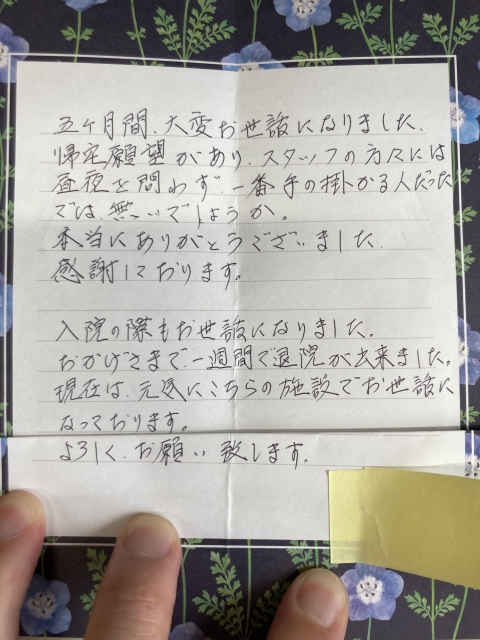 五ヶ月間、大変お世話になりました、
帰宅願望があり、スタッフの方々には
昼夜を問わず、一番手の掛かる人だった
では、無いでしょうか。
本当にありがとうございました、
感謝しております。
入院の際もお世話になりました、
おかげさまで、一週間で退院が出来ました。
現在は、元気にこちらの施設でお世話に
なっております。
よろしく、お願い致します。